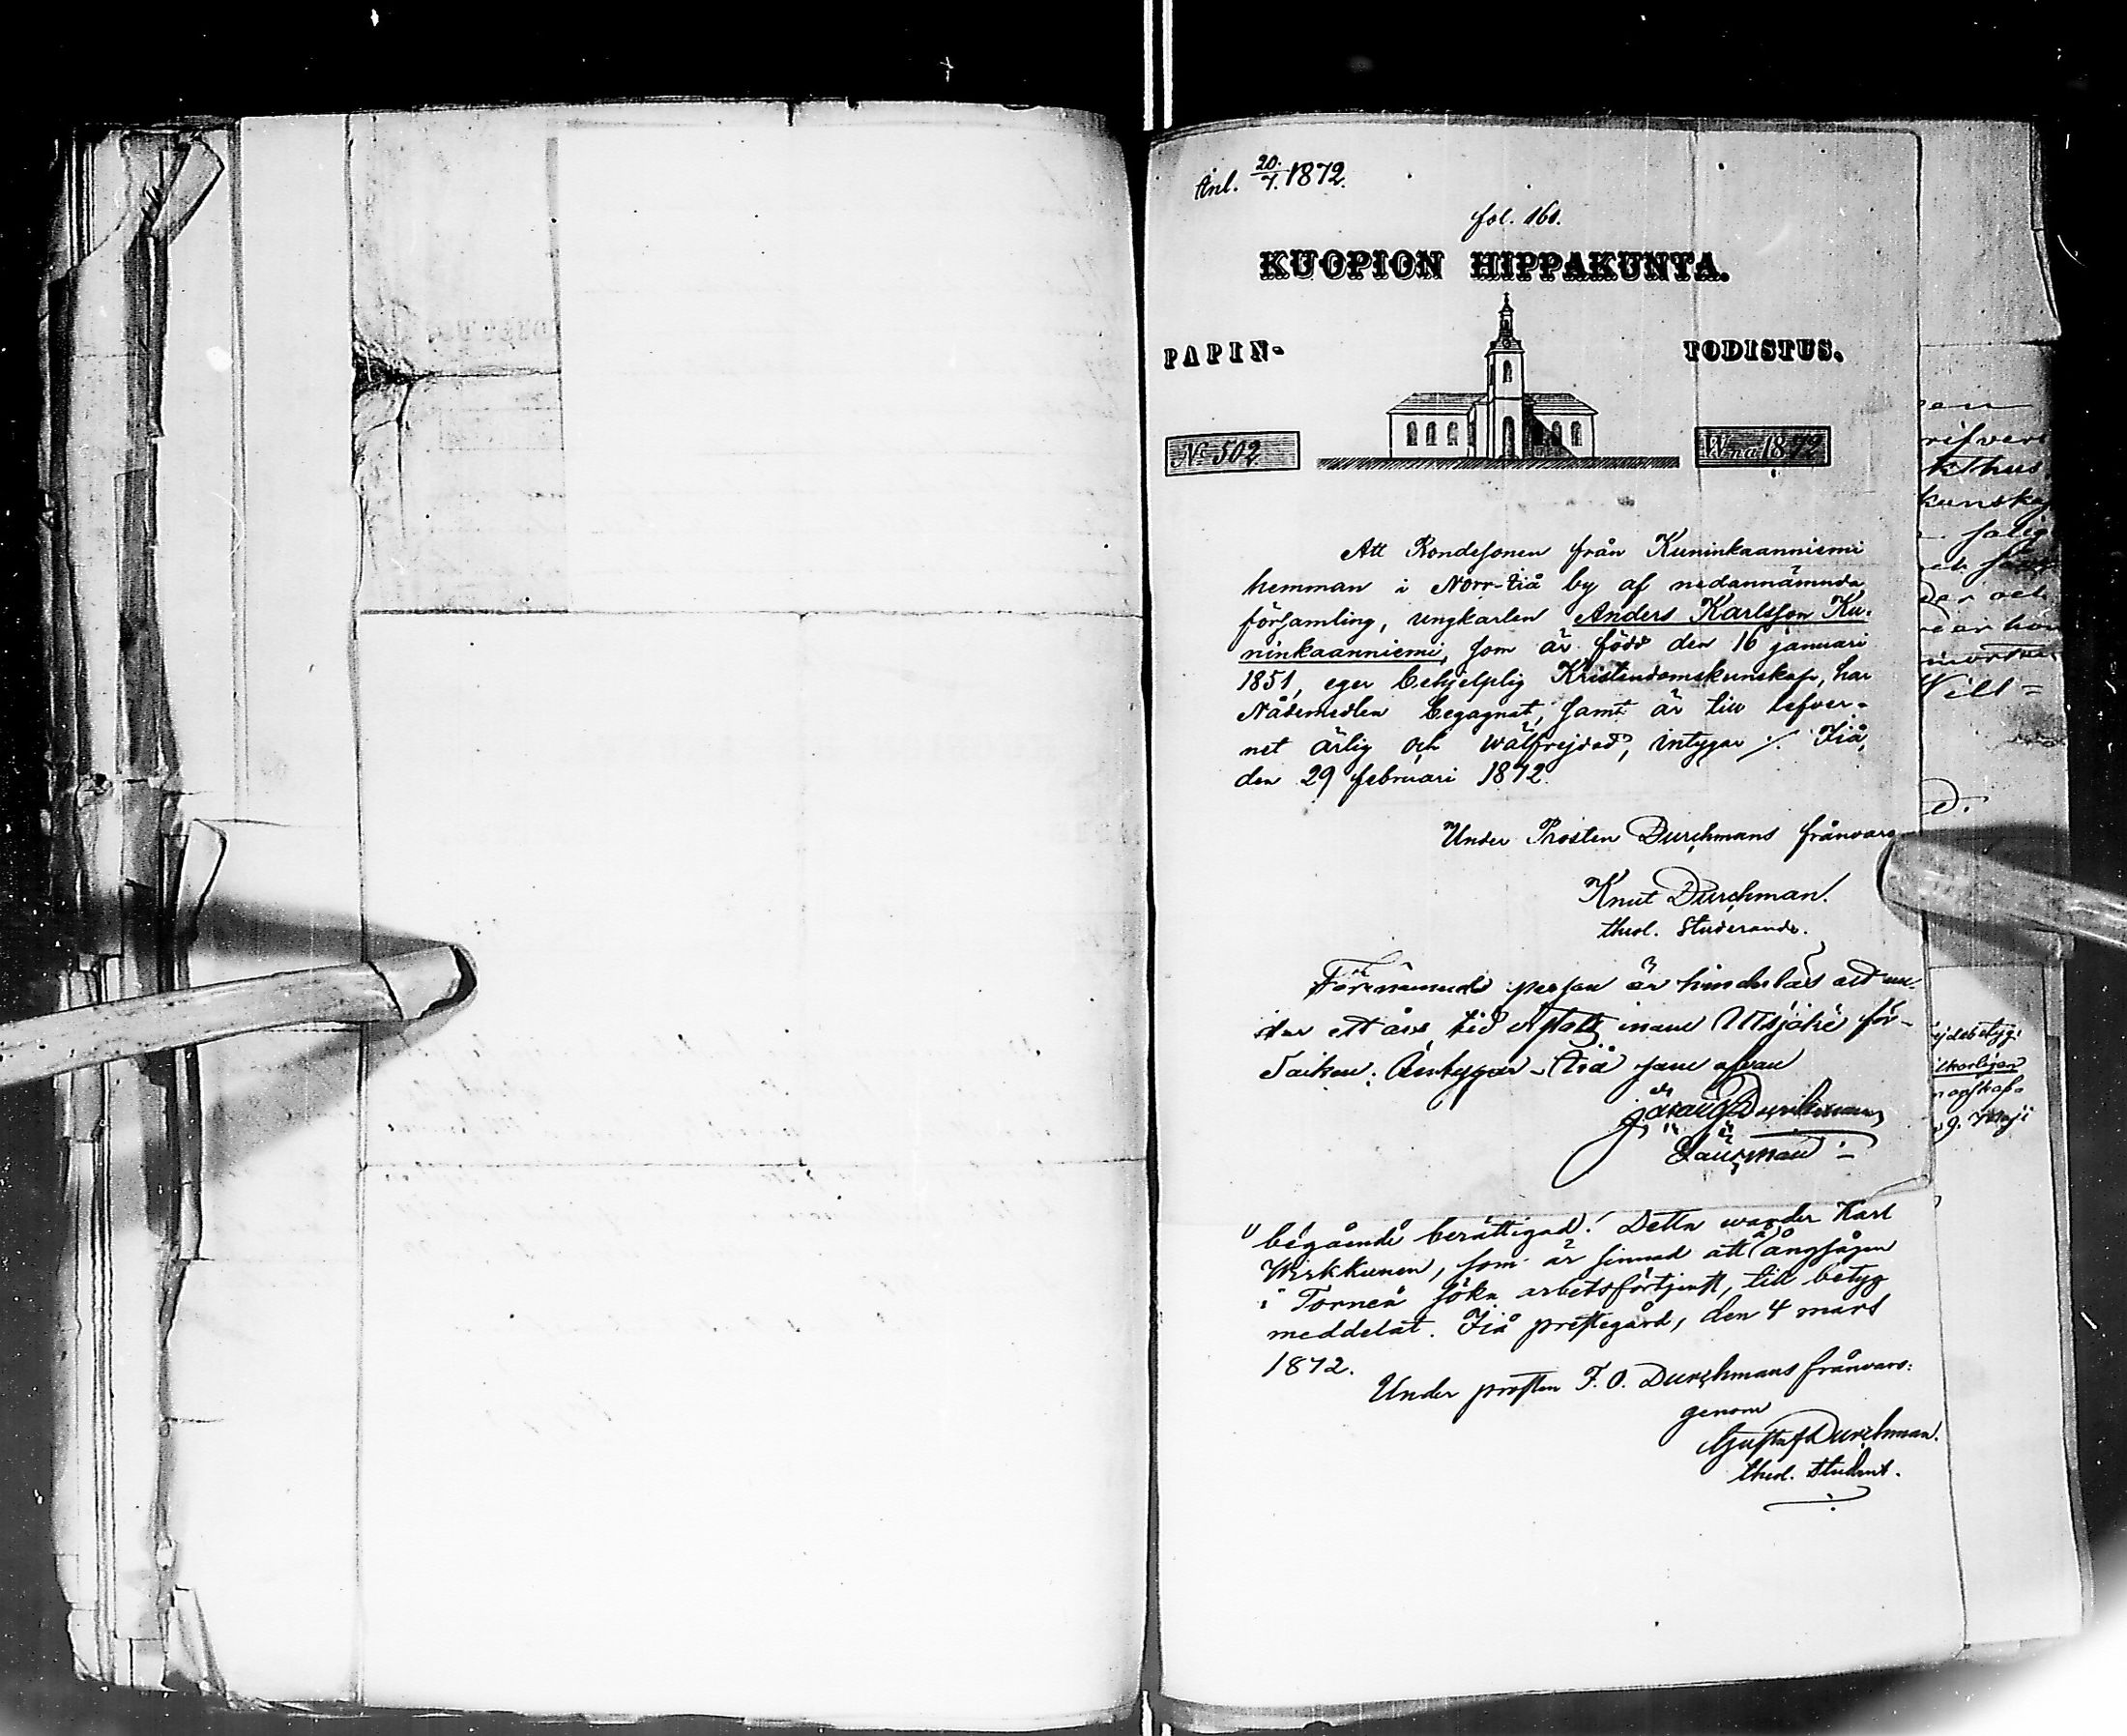 Anl. 20./7. 1872.
fol. 161.
KUOPION HIPPAKUNTA.
PAPIN- TODISTUS.
No 502 W:na 1872
Att Bondesonen från Kuninkaanniemi
hemman i Norr-Iiå by af nedannämnda
församling, ungkarlen Anders Karlsson Ku-
ninkaanniemi, som är född den 16 januari
1851, eger behjelplig Kristendomskunskap, har
Nådemedlen begagnat, samt är till lefver-
net ärlig och wälfrejdad, intygar ./. Iiå,
den 29 februari 1872.
Under Prosten Durchmans frånvaro
Knut Durchman.
theol. Studerande.
Förenämnde person är hinderlös att un-
der ett års tid inom Utsjoki för-
Intygar Iiå som ofvan
Durchman
begående berättigad! Detta warder Karl
Wirkkunen, som är sinnad att å ångsågen
i Torneå söka arbetsförtjenst, till betyg
meddelat. Iiå prestegård, den 4 mars
1872.
Under prosten F. O. Durchmans frånvaro:
genom
Gustaf Durchman.
theol. Student.
kunskap
salig
Vill=
9. Maji